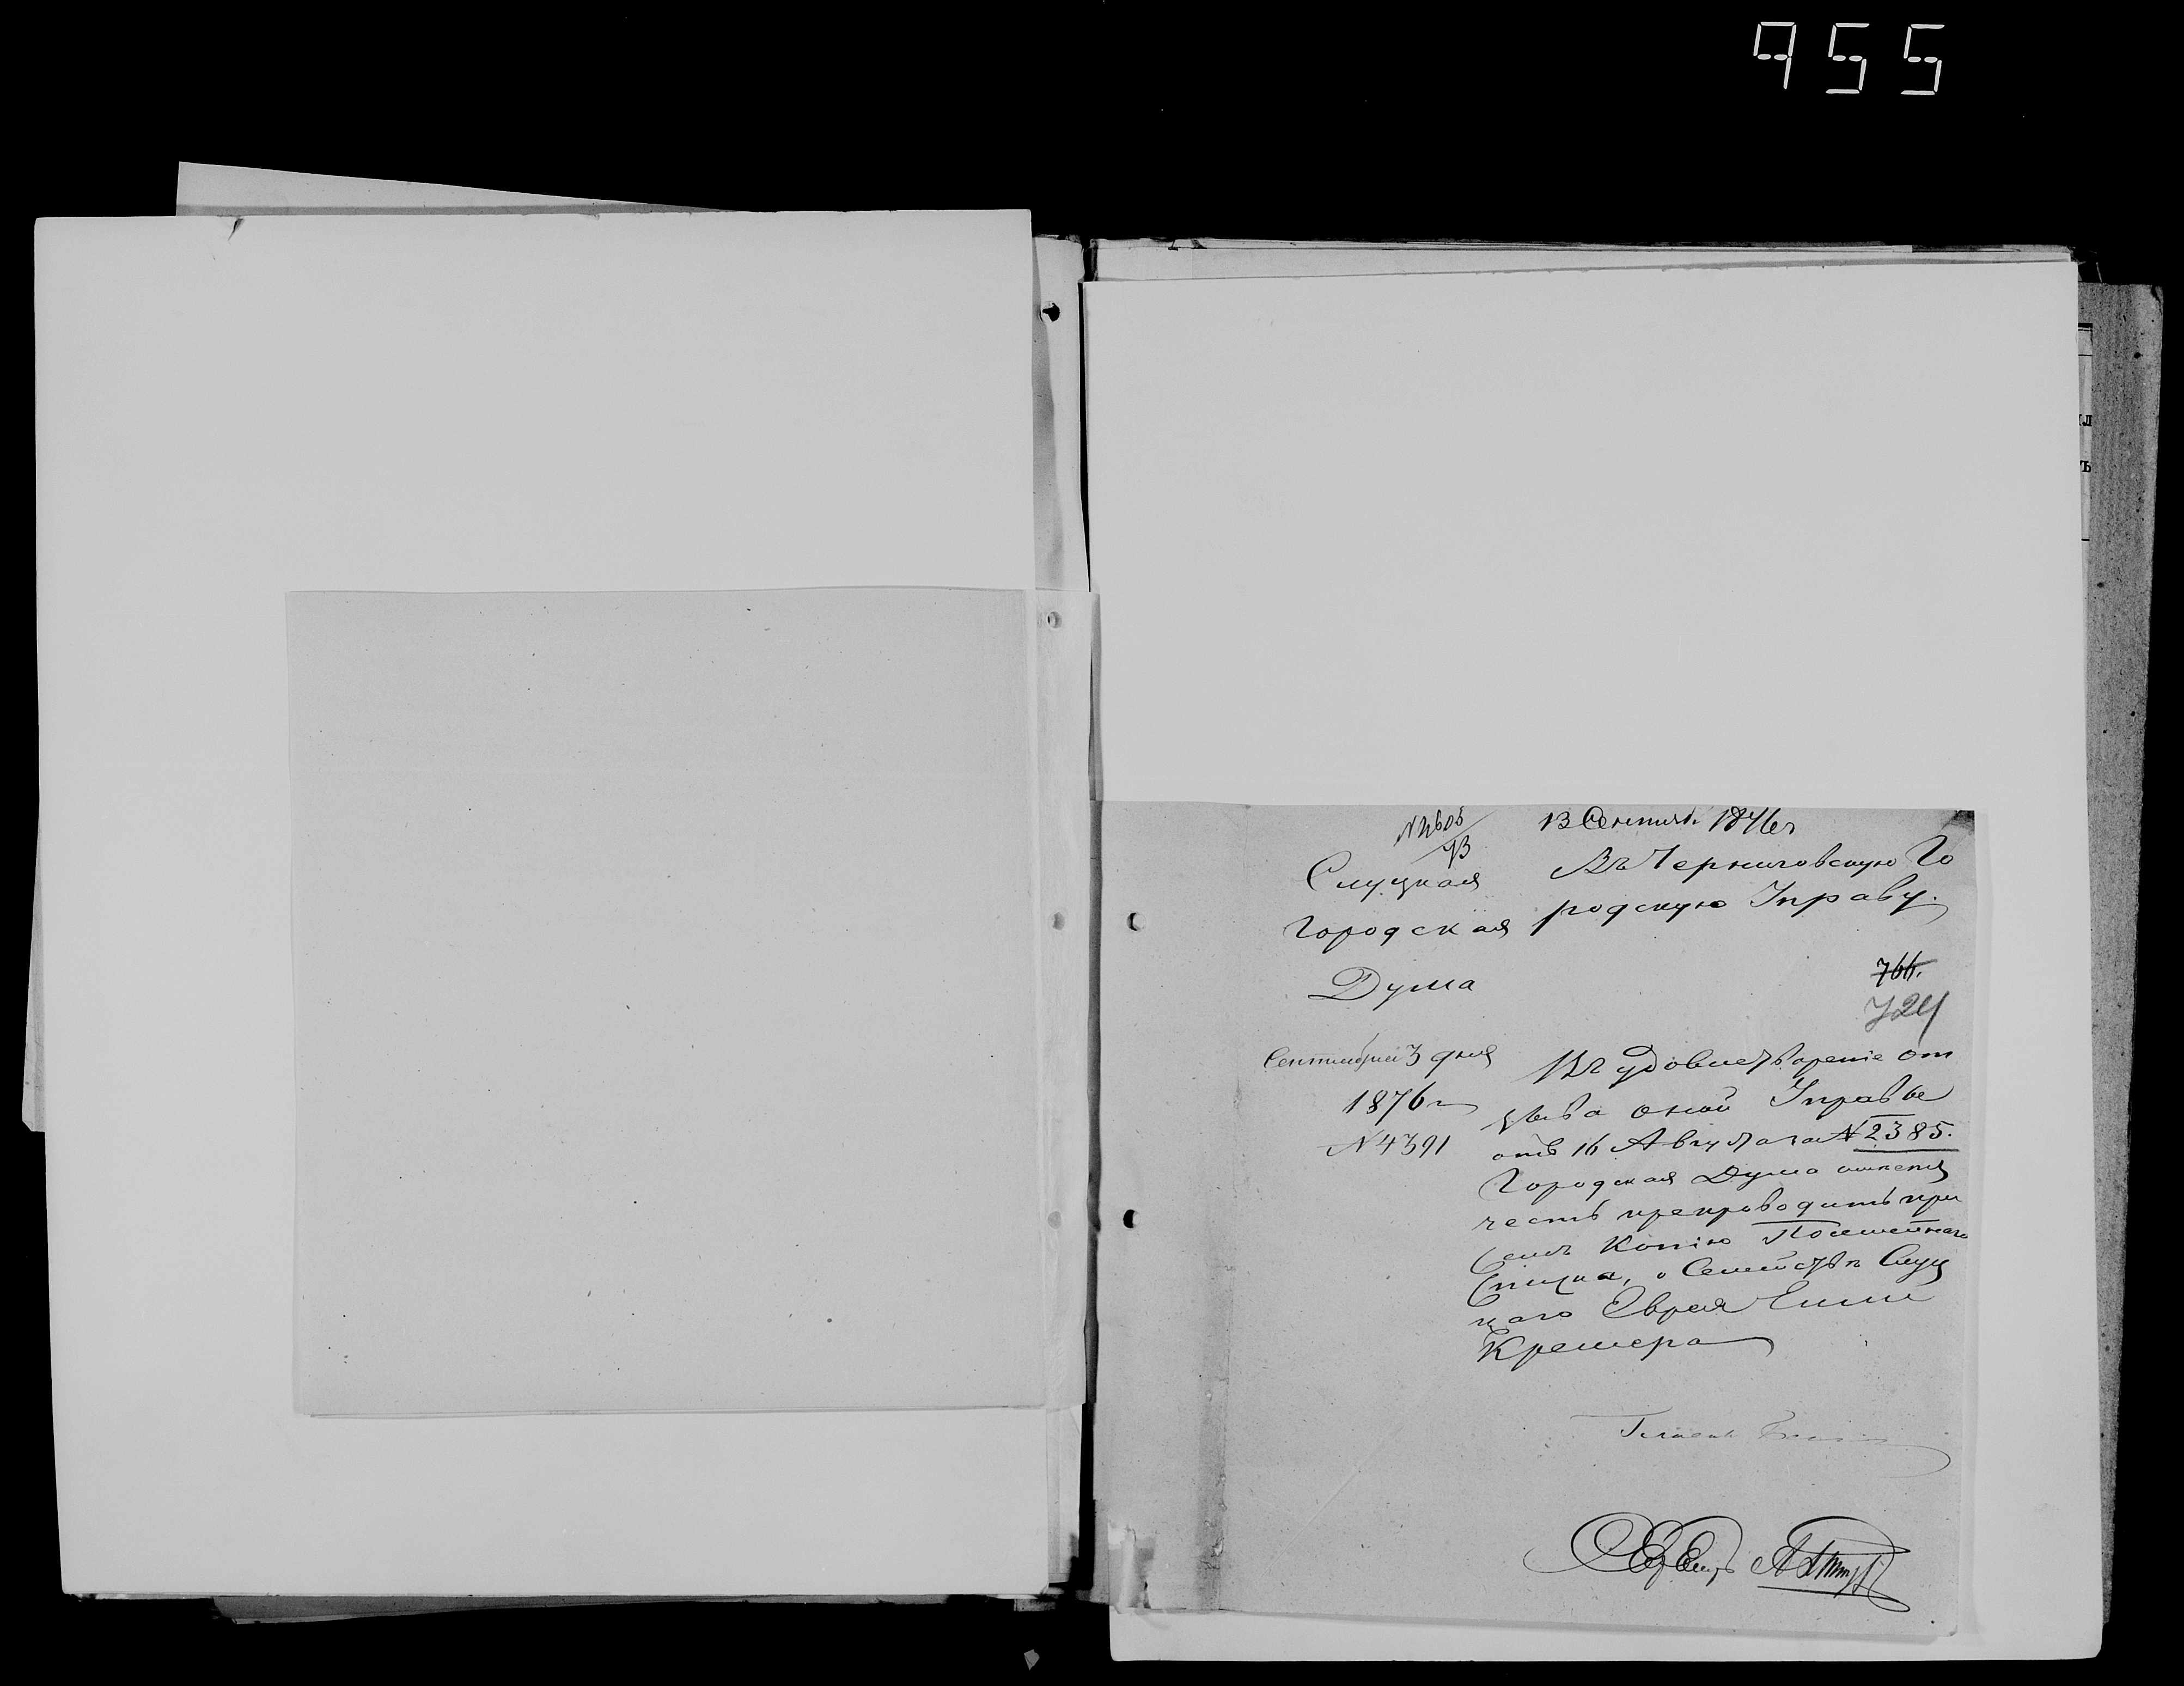 955
N 2605/13
13 Сентяб. 1876 г
Слуцкая
Городская
Дума
Въ Черниговскую Го
родскую Управу.
766.
724
Сентября 3 дня
1876 г
N 4391
Въ удовлетвореніе от
зыва оной Управы
отъ 16 Августа за N 2385.
Городская Дума имѣетъ
честь препроводить при
семъ Копію Посемейнаго
Списка, о Семействѣ Слуц
каго Еврея
Кремера